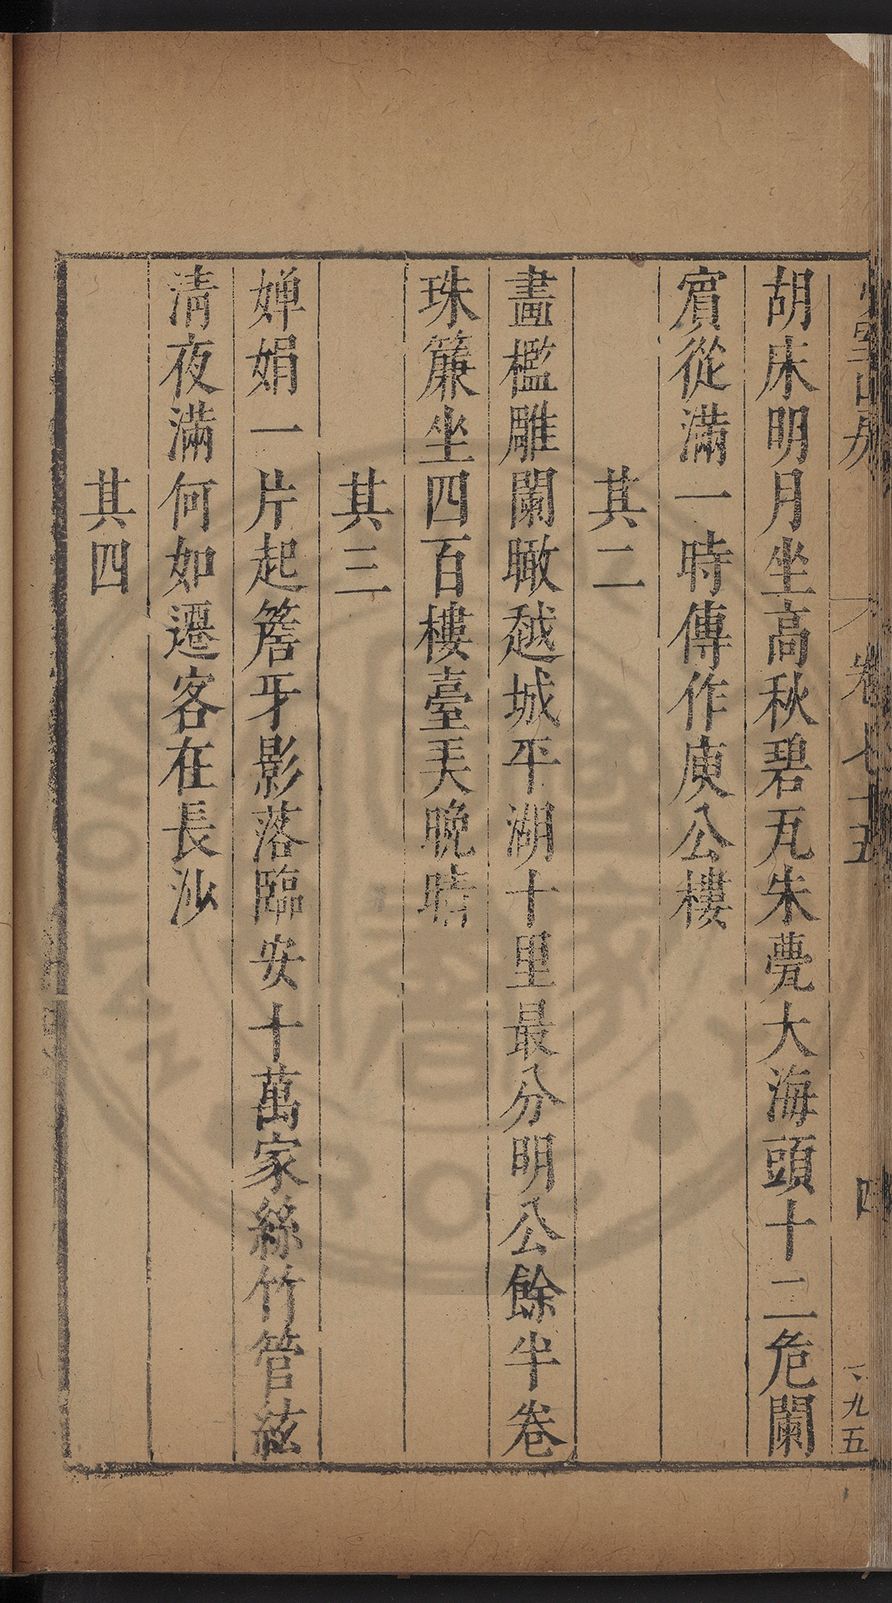 胡床明月坐高秋碧瓦朱甍大海頭十二危闌
賓從滿一時傳作庾公樓
其二
畫檻雕闌瞰越城平湖十里最分明公餘半卷
珠簾坐四百樓臺天晚晴
其三
嬋娟一片起簷牙影落臨安十萬家絲竹管絃
清夜滿何如遷客在長沙
其四
室山房
卷七十五
四
九五